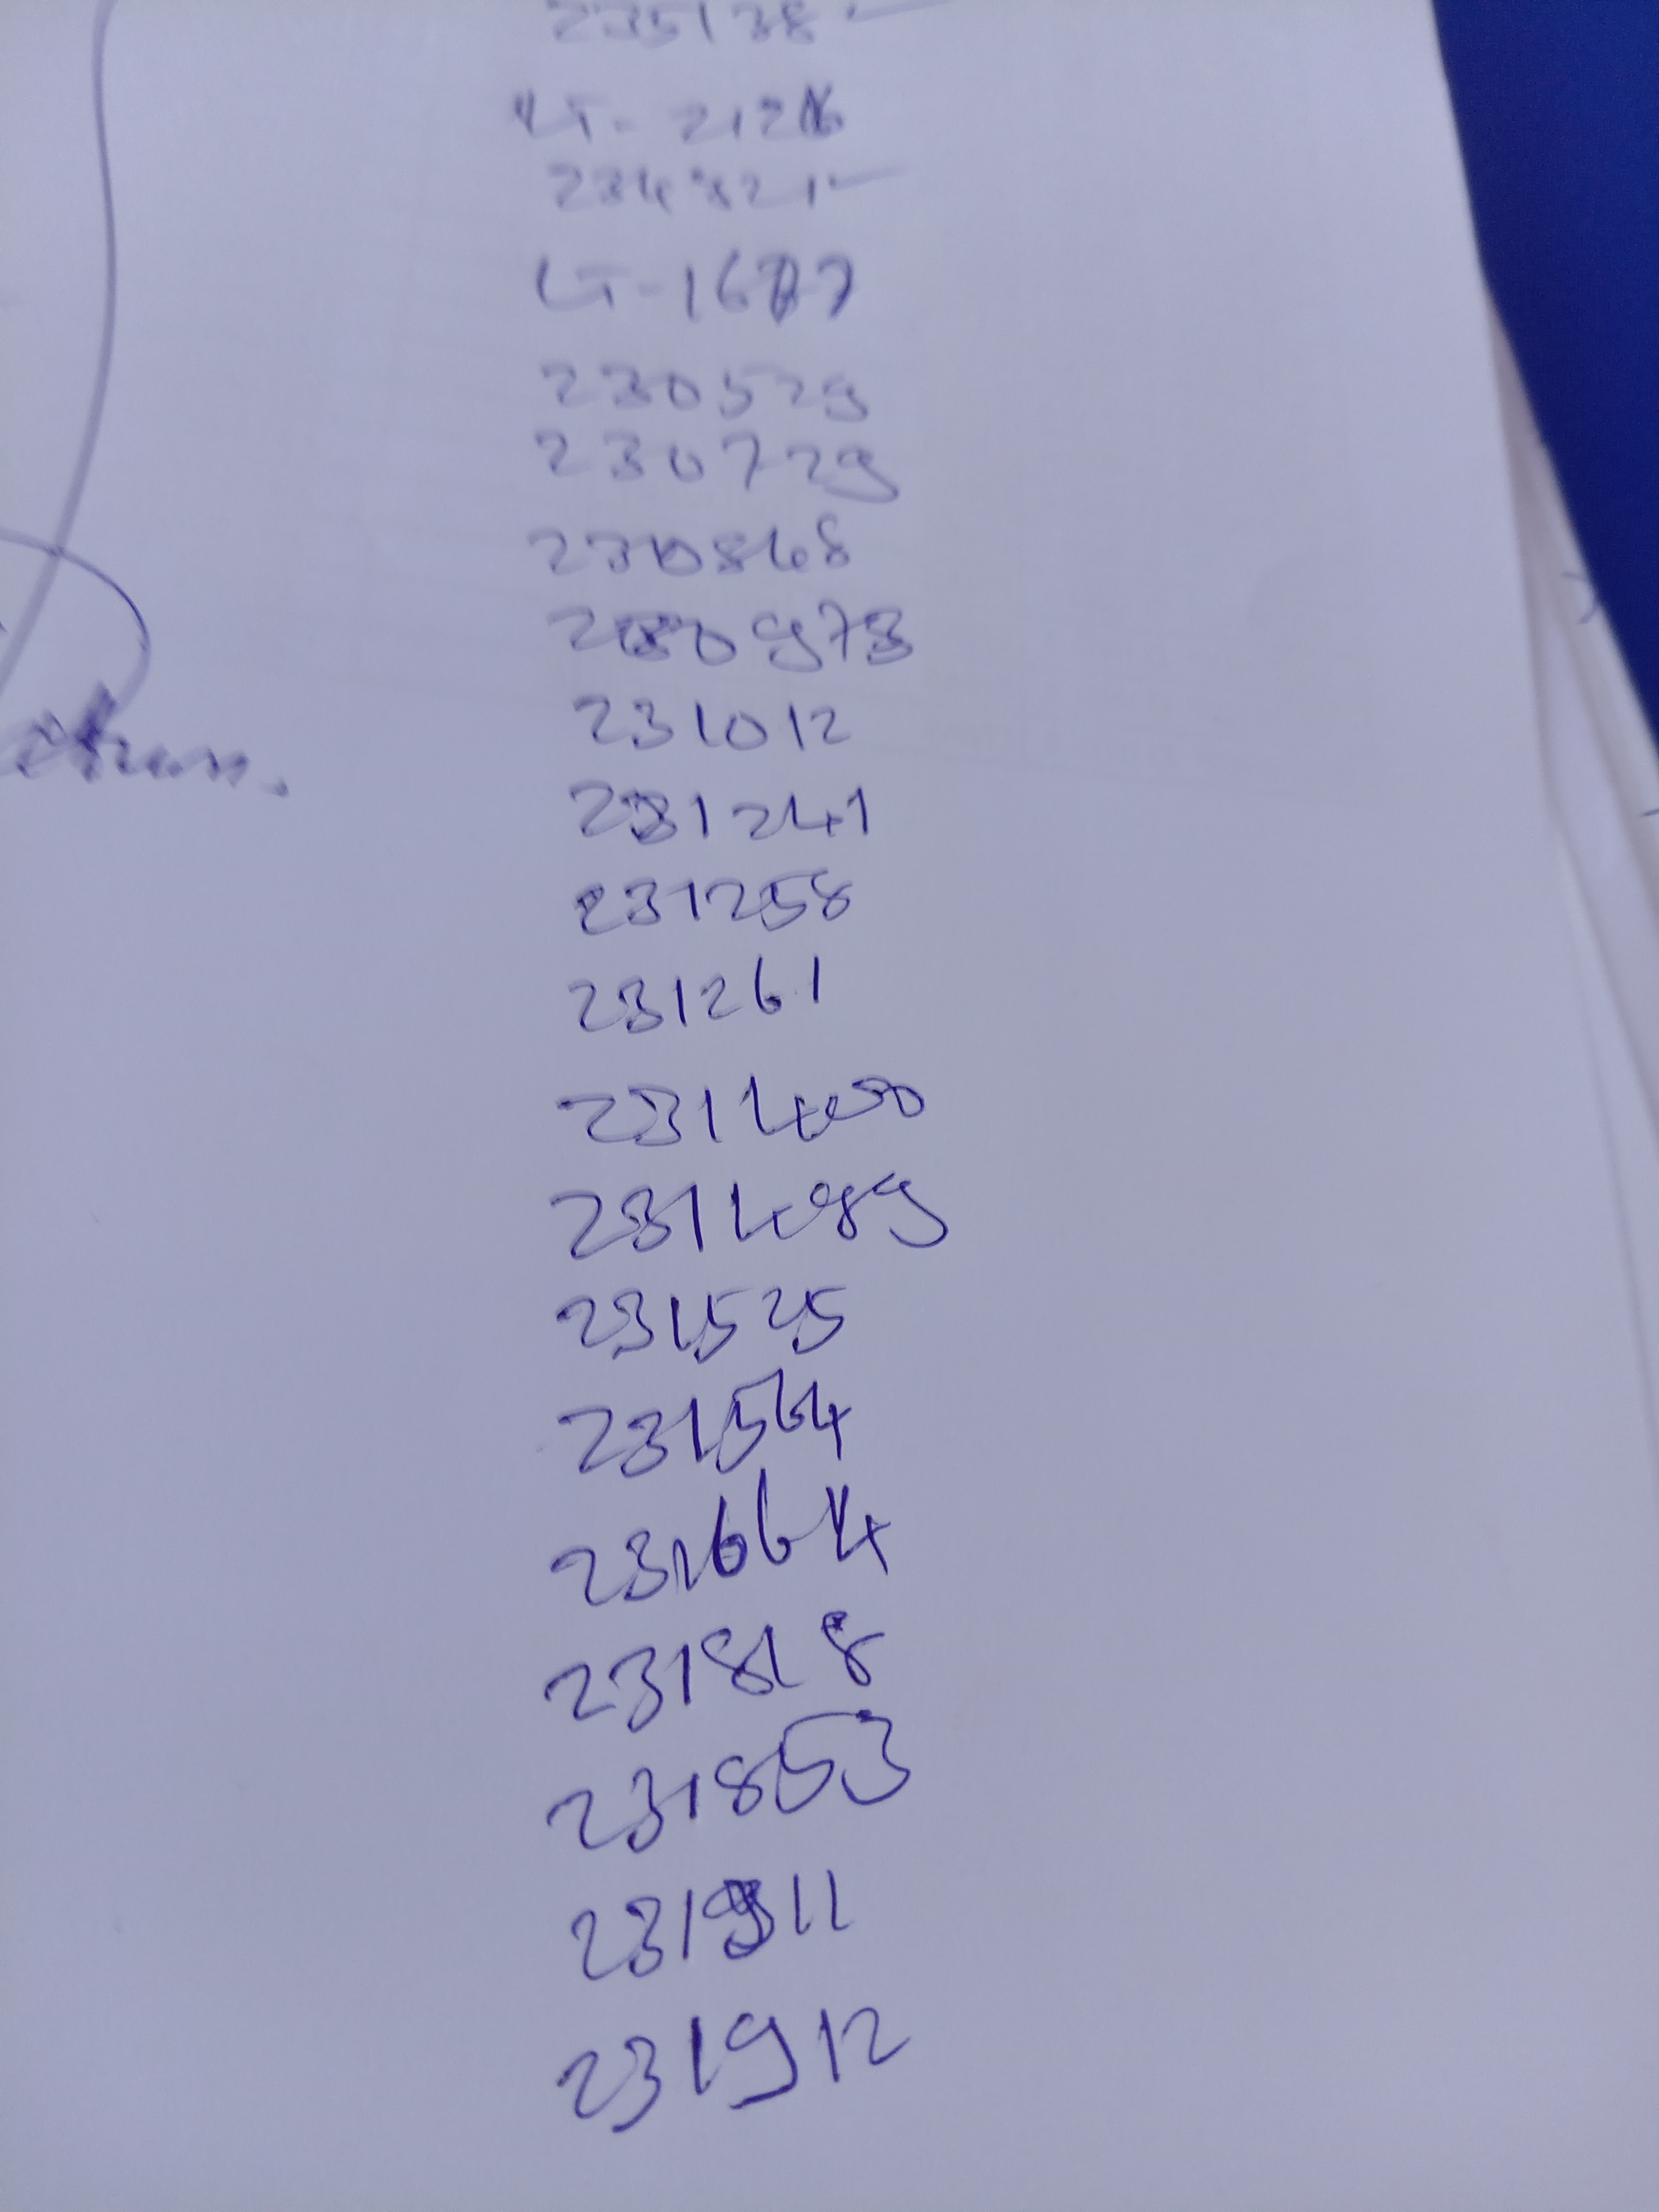 235138
LT-2126
234821
LT-1677
230529
230729
230868
230973
231012
231241
231258
231261
231400
231499
231525
231564
231664
231818
231853
231911
231912